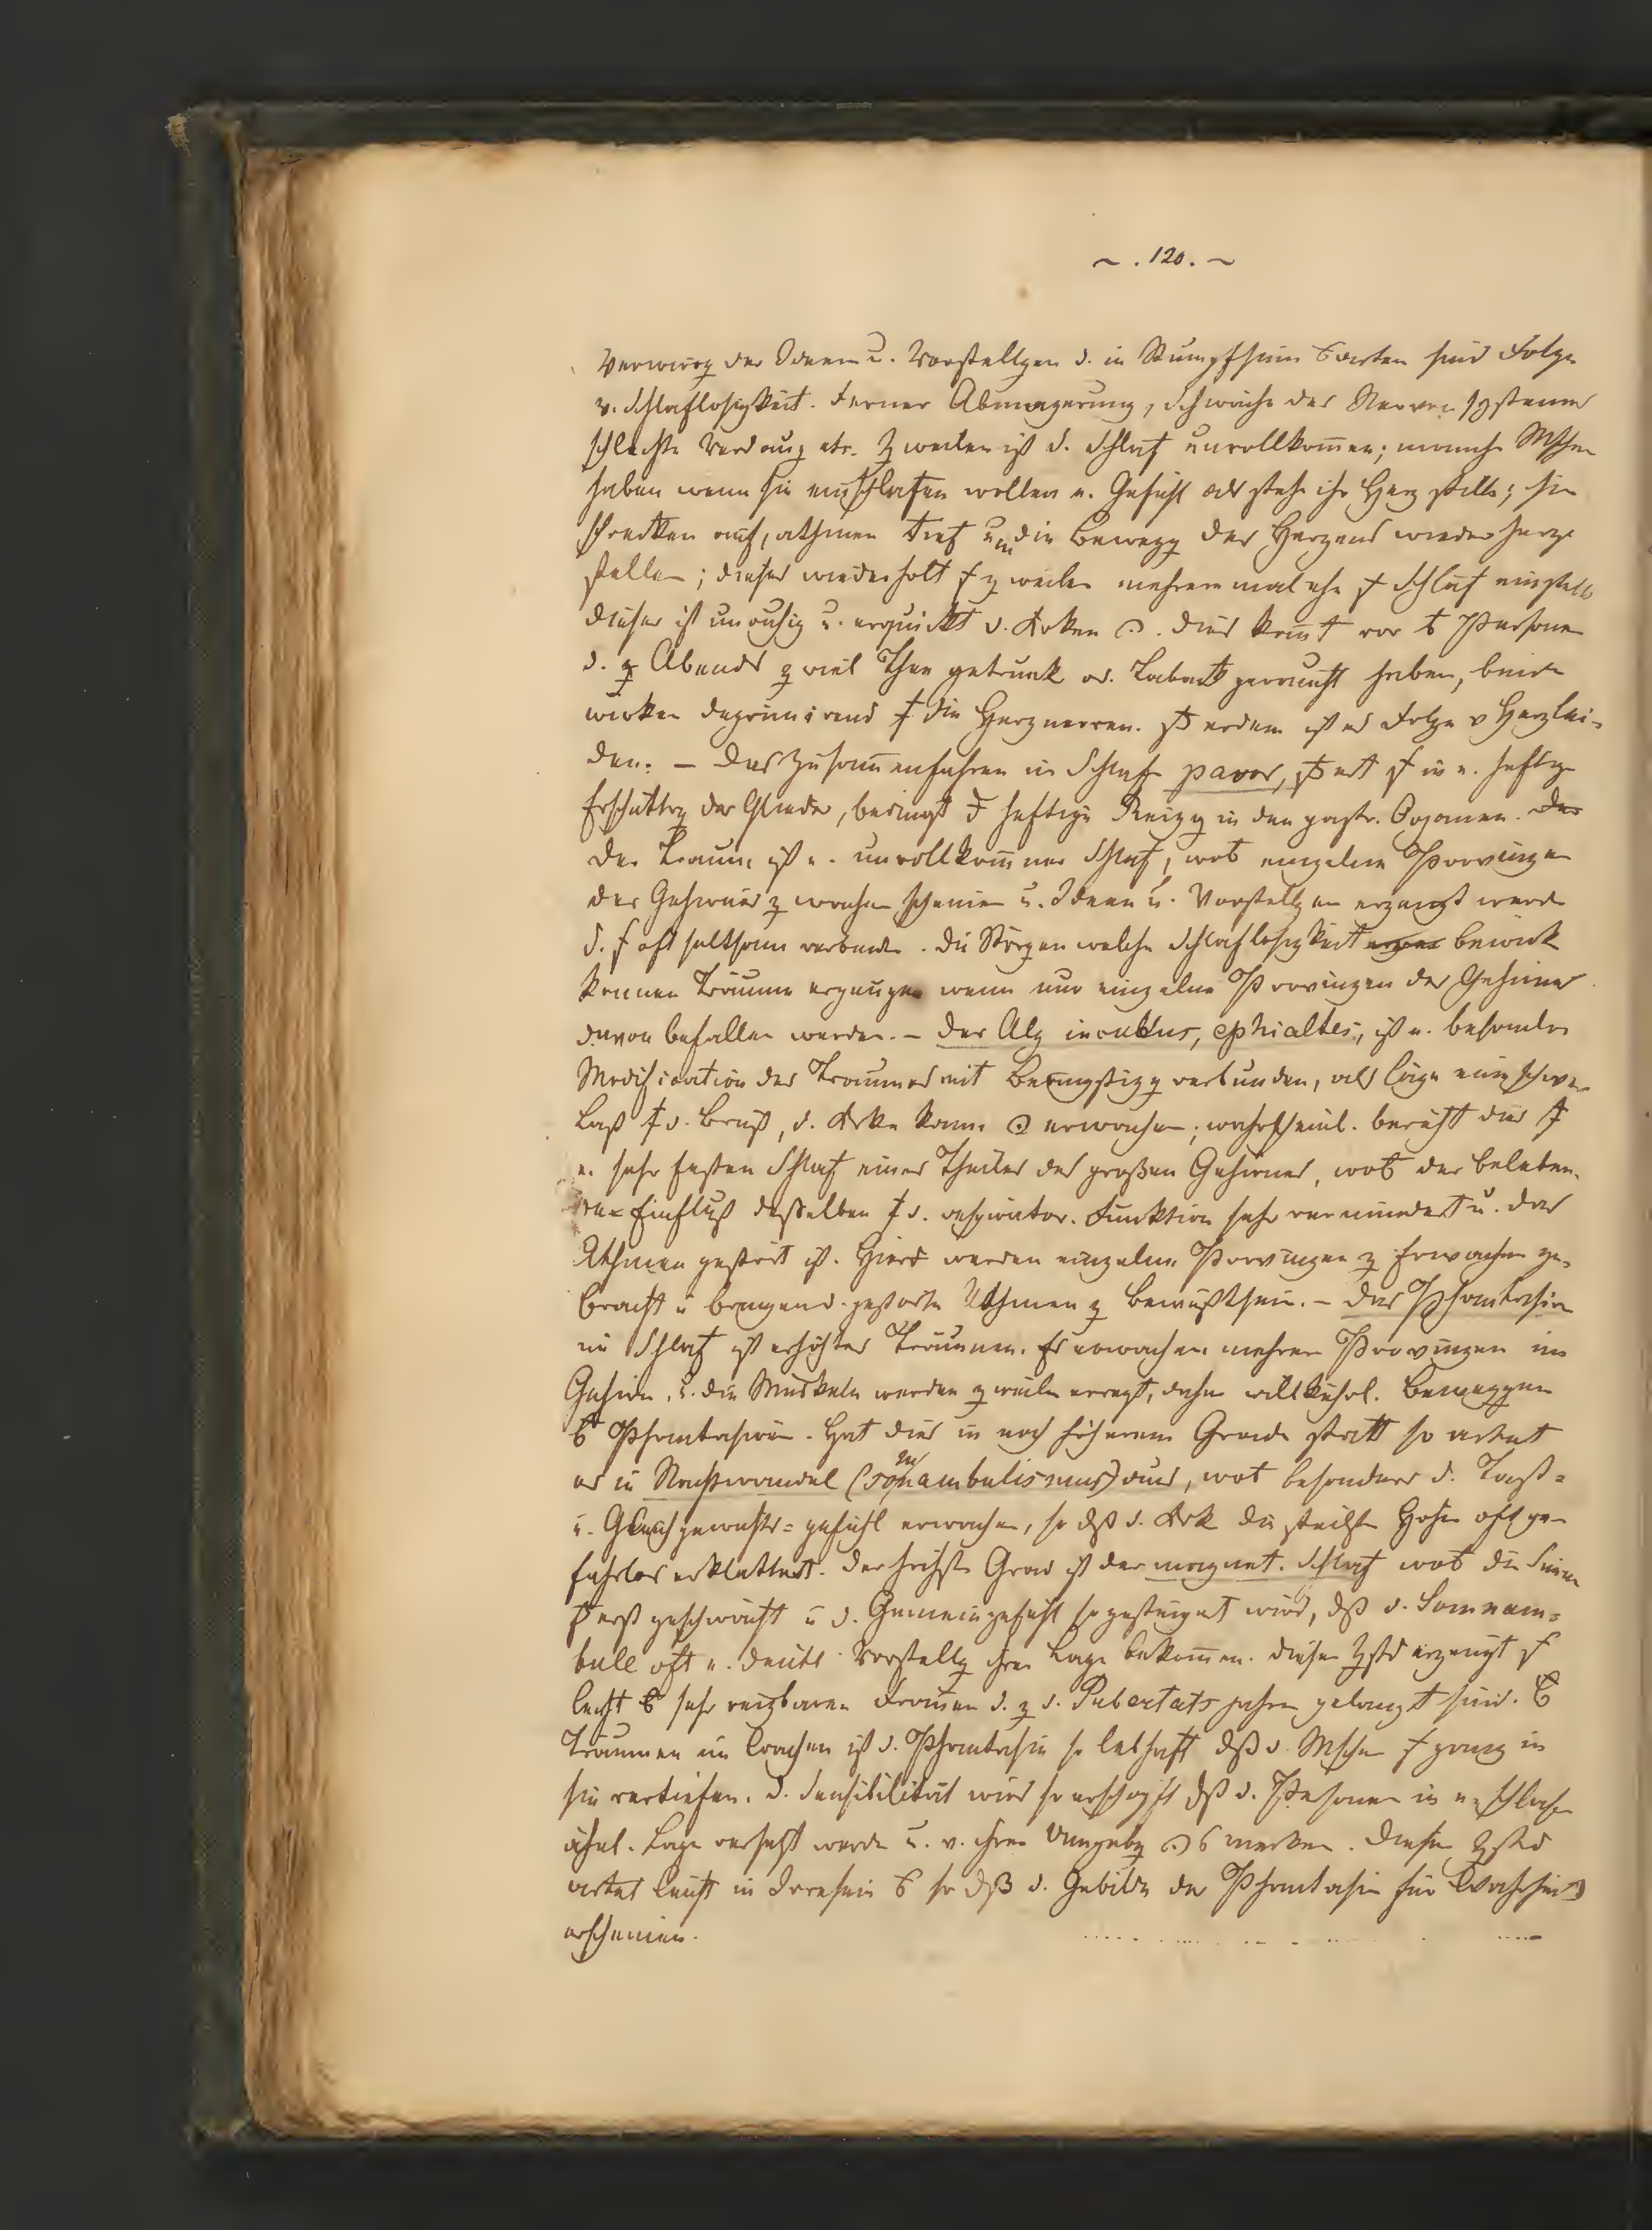 ~ . 120 . ~
Verwirrg der Ideen u. Vorstellgen d. in Stumpfsinn arten sind Folge
v. Schlaflosigkeit. Ferner Abmagerung, Schwäche des Nervensystems
schlechte Verdaug etc. Zweilen ist d. Schlaf unvollkom̄en; manche Mschen
haben wenn sie einschlafen wollen e. Gefühl als stehe ihr Herz stille; sie
schrecken auf, athmen tief um die Bewegg des Herzens wiederherz
stellen; dieses wiederholt zweilen mehreremal ehe Schlaf einstellt
dieser ist unruhig u. erquickt d. Krken. Dies kom̄t vor Personen
d. Abends z viel Thee getrunk od. Taback geraucht haben, beide
wirken deprimirend die Herznerven. erdem ist es Folge v Herzlei-
den. — Das Zusam̄enfahren im Schlafe pavor, ert in e. heftge
Erschüttrg der Glieder, bedingt heftige Reizg in den gastr. Organen.
Der Traum ist e. unvollkom̄ner Schlaf, wo einzelne Provinzen
des Gehirns z wachen scheinen u. Ideen u. Vorstellgen erzeugt werde
d. oft seltsam verbinden. Die Störgen welche Schlaflosigkeit bewirk
können Träume erzeugen wenn nur einzelne Provinzen des Gehirns
davon befallen werden. — Der Alp incubus, ephialtes, ist e. besondre
Modification des Traumes mit Beängstigg verbunden, als läge eine schwere
Last d. Brust, d. Krke kann erwachen; wahrscheinl. beruht dies
e. sehr festen Schlaf eines Theiles des großen Gehirnes, wo der beleben-
de Einfluß desselben d. respirator. Funktion sehr vermindert u. das
Athmen gestört ist. Hier werden einzelne Provinzen z Erwachen ge-
bracht u gestörte Athmen z Bewußtsein. — Das Phantasiren
im Schlaf ist erhöhtes Träumen. Es erwachen mehrere Provinzen im
Gehirn, u. die Muskeln werden zweilen erregt, daher willkührl. Beweggen
Phantasiren. Hat dies in noch höherem Grade statt so artet
es in Nachtwandel (somnambulismus) aus, wo besonders d. Tast-
u. Gleichgewichts-gefühl erwachen, so dß d. Krk die steilsten Höhen oft ge-
fahrlos erklettert. Der höchste Grad ist der magnet. Schlaf wo die Sinne
erst geschwächt u d. Gemeingefühl so gesteigert wird, dß d. Somnam-
bule oft e. deutl. Vorstellg ihrer Lage bekom̄en. Dieser Zstd erzeugt
leicht sehr reizbaren Frauen d. z d. Pubertätsjahren gelangt sind.
Träumen im Wachen ist d. Phantasie so lebhaft dß d. Mschen ganz in
sie vertiefen. D. Sensibilität wird so erschöpft dß d. Personen in e. schlaf
ähnl. Lage versetzt werde u. v. ihrer Umgebg merken. Dieser Zstd
artet leicht in Irresein so dß d. Gebilde der Phantasie für Wahrheit
erscheinen.